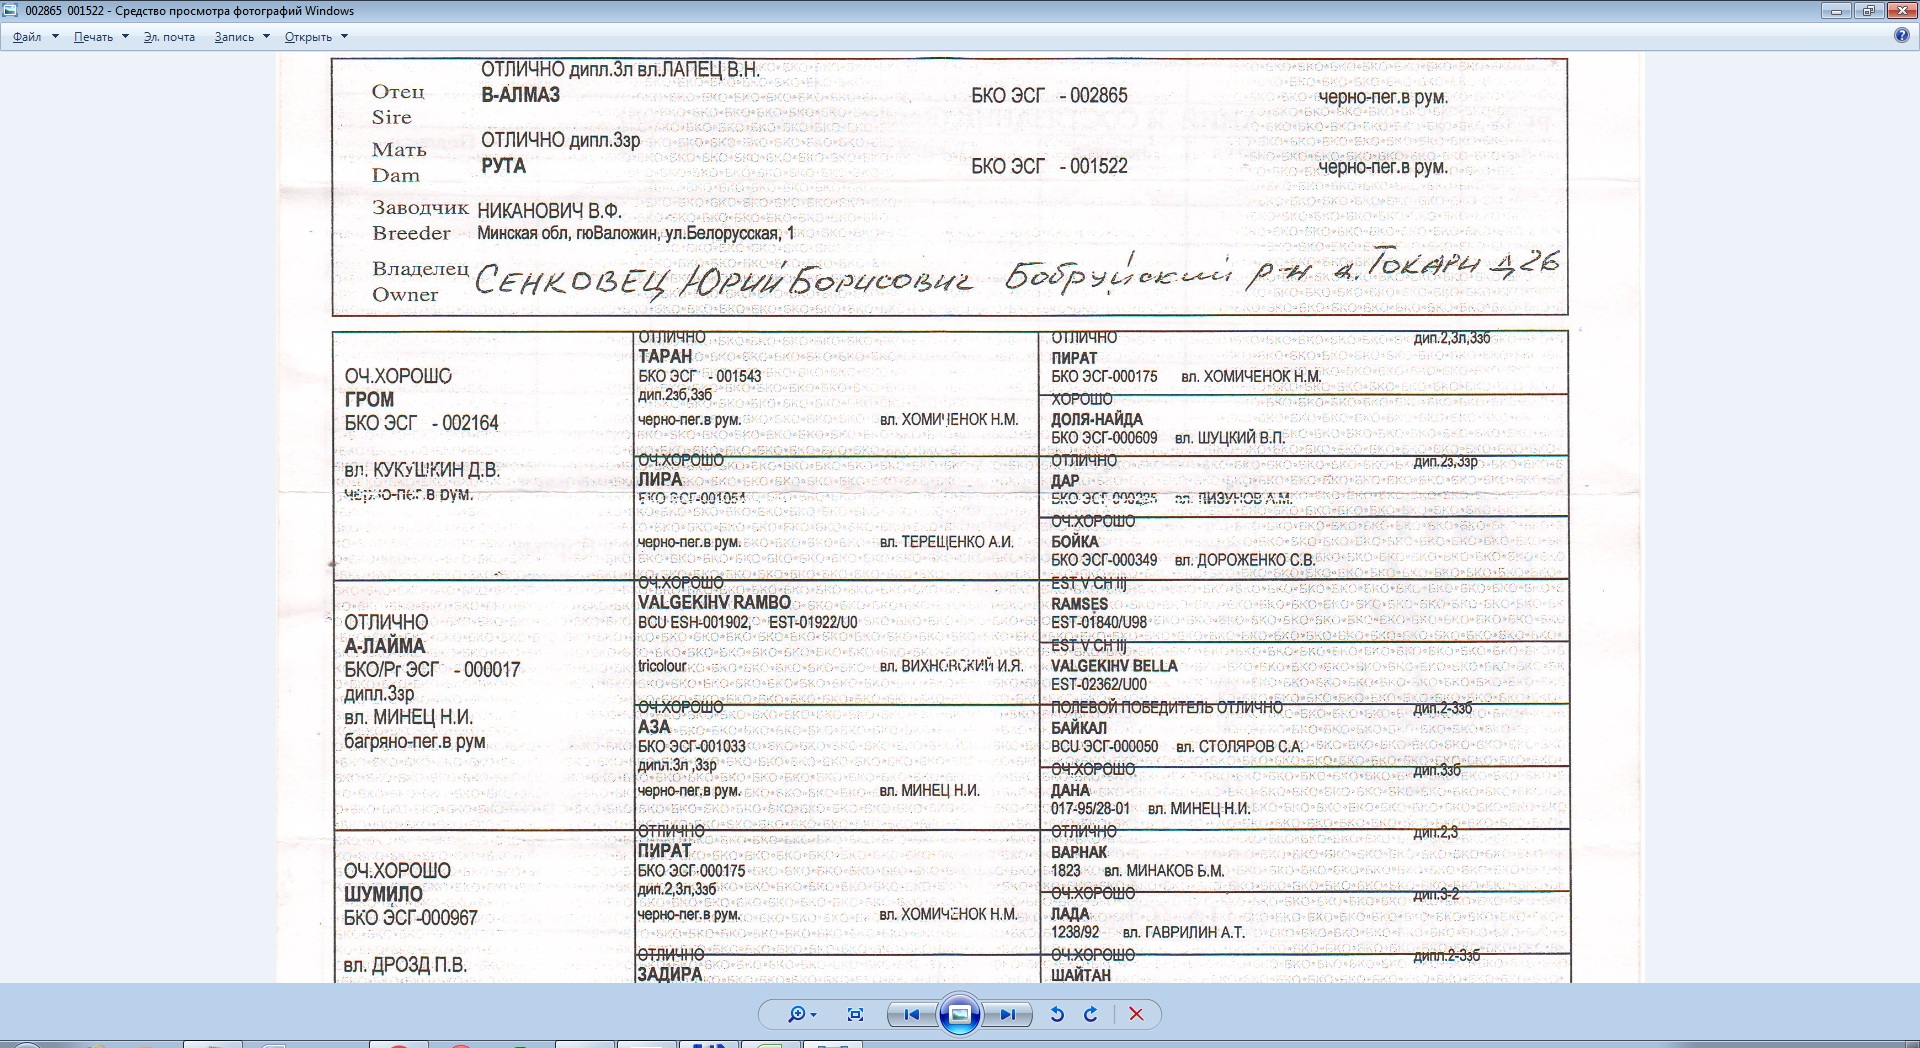 002865 001522 - Средство просмотра фотографий Windows
Файл Печать Эл. почта Запись Открыть
ОТЛИЧНО дипл.3л вл.ЛАПЕЦ В.Н.
Отец В-АЛМАЗ БКО ЭСГ - 002865 черно-пег.в рум.
Sire
ОТЛИЧНО дипл.3зр
Мать РУТА БКО ЭСГ - 001522 черно-пег.в рум.
Dam
Заводчик НИКАНОВИЧ В.Ф.
Breeder Минская обл, гюВаложин, ул.Белорусская, 1
Владелец СЕНКОВЕЦ ЮРИЙ БОРИСОВИЧ Бобруйский р-н д. ТОКАРИ Д 26
Owner
ОЧ.ХОРОШО
ГРОМ
БКО ЭСГ - 002164
вл. КУКУШКИН Д.В.
черно-пег.в рум.
ОТЛИЧНО
ТАРАН
БКО ЭСГ - 001543
дип.2зб,3зб
черно-пег.в рум. вл. ХОМИЧЕНОК Н.М.
ОЧ.ХОРОШО
ЛИРА
БКО ЭСГ-001054
черно-пег.в рум. вл. ТЕРЕЩЕНКО А.И.
ОТЛИЧНО дип.2,3л,3зб
ПИРАТ
БКО ЭСГ-000175 вл. ХОМИЧЕНОК Н.М.
ХОРОШО
ДОЛЯ-НАЙДА
БКО ЭСГ-000609 вл. ШУЦКИЙ В.П.
ОТЛИЧНО дип.2з,3зр
ДАР
БКО ЭСГ вл. ЛИЗУНОВ А.М.
ОЧ.ХОРОШО
БОЙКА
БКО ЭСГ-000349 вл. ДОРОЖЕНКО С.В.
ОТЛИЧНО
А-ЛАЙМА
БКО/Рг ЭСГ - 000017
дипл.3зр
вл. МИНЕЦ Н.И.
багряно-пег.в рум
ОЧ.ХОРОШО
VALGEKIHV RAMBO
BCU ESH-001902, EST-01922/U0
tricolour вл. ВИХНОВСКИЙ И.Я.
ОЧ.ХОРОШО
АЗА
БКО ЭСГ-001033
дипл.3л ,3зр
черно-пег.в рум. вл. МИНЕЦ Н.И.
EST V CH IIJ
RAMSES
EST-01840/U98
EST V CH IIJ
VALGEKIHV BELLA
EST-02362/U00
ПОЛЕВОЙ ПОБЕДИТЕЛЬ ОТЛИЧНО дип.2-3зб
БАЙКАЛ
BCU ЭСГ-000050 вл. СТОЛЯРОВ С.А.
ОЧ.ХОРОШО дип.3зб
ДАНА
017-95/28-01 вл. МИНЕЦ Н.И.
ОЧ.ХОРОШО
ШУМИЛО
БКО ЭСГ-000967
вл. ДРОЗД П.В.
ОТЛИЧНО
ПИРАТ
БКО ЭСГ-000175
дип.2,3л,3зб
черно-пег.в рум. вл. ХОМИЧЕНОК Н.М.
ОТЛИЧНО
ЗАДИРА
ОТЛИЧНО дип.2,3
ВАРНАК
1823 вл. МИНАКОВ Б.М.
ОЧ.ХОРОШО дип.3-2
ЛАДА
1238/92 вл. ГАВРИЛИН А.Т.
ОЧ.ХОРОШО дипл.2-3зб
ШАЙТАН